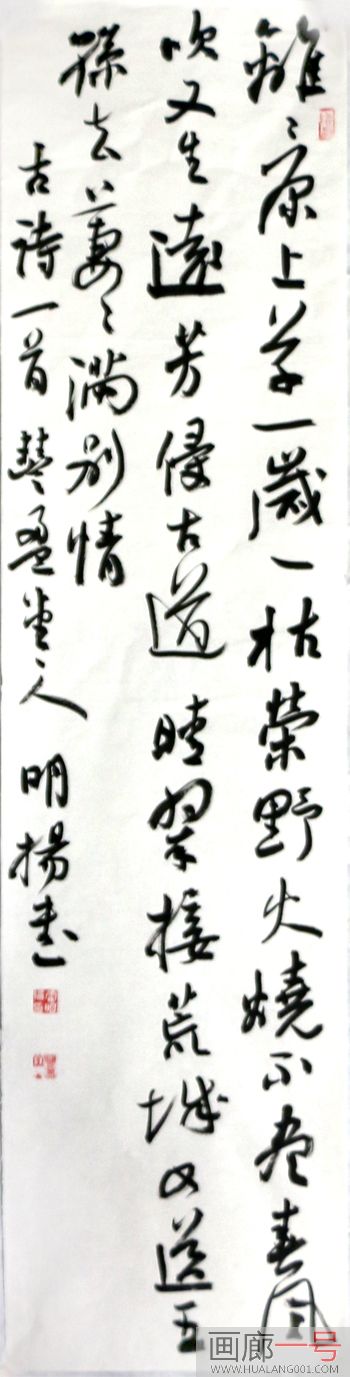 離々原上草一歲一枯榮野火燒不盡春風
吹又生遠芳侵古道晴翠接荒城又送王
孫去萋々滿別情
古詩一首 盈堂 人 明揚書
画廊一号
WWW.HUALANG001.COM